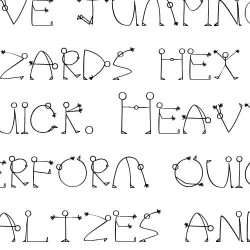 VE JUMPING
ZARDS HEX
UICK. HEAV
ERFORM QUIC
ALTZES AND